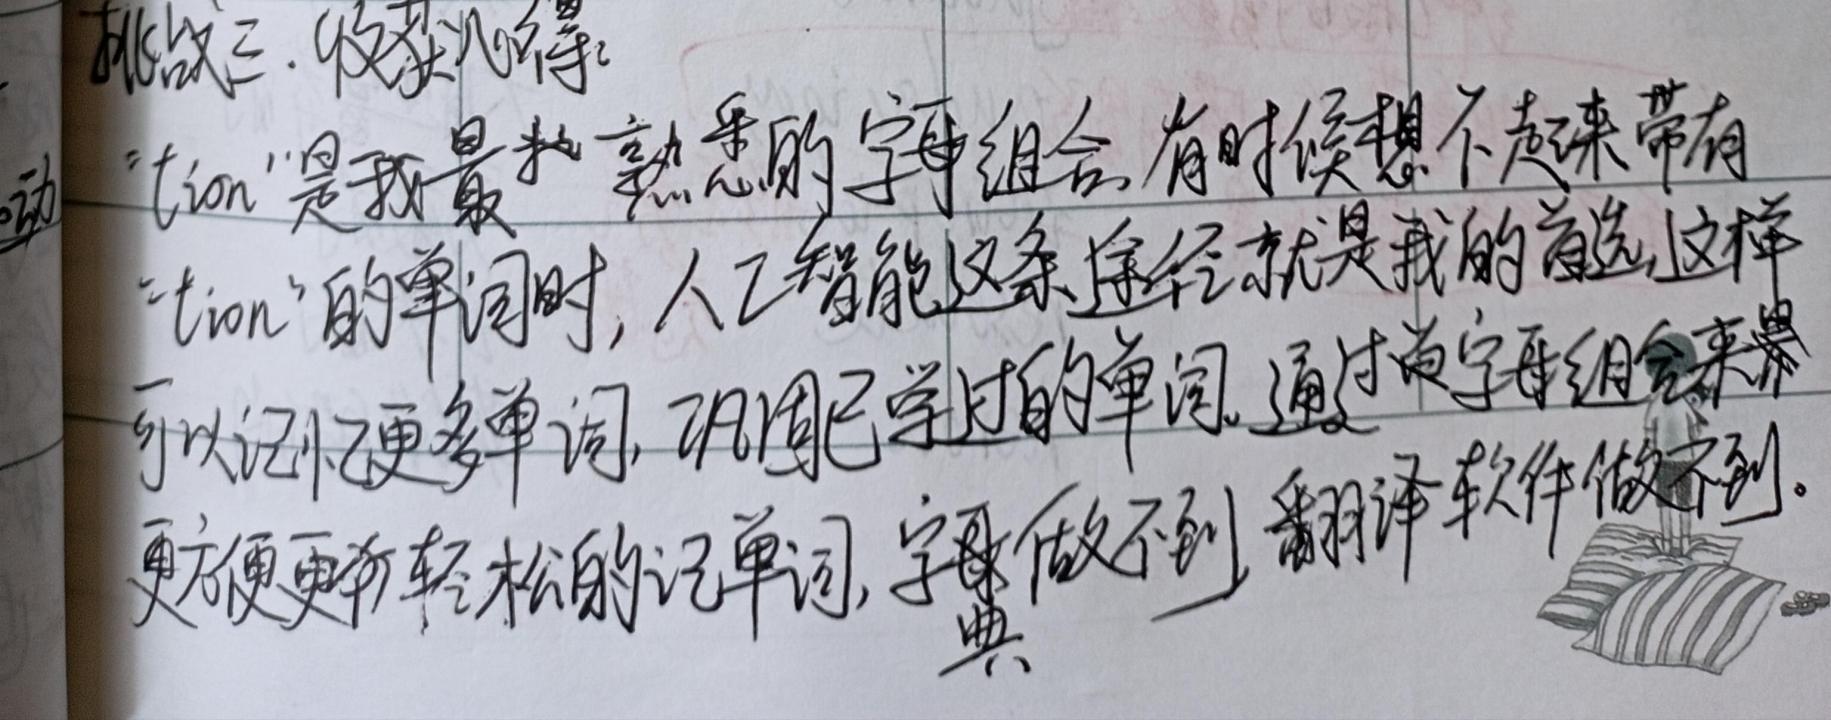 挑战三.收获心得:
"tion"是我最熟悉的字母组合,有时候想不起来带有
"tion"的单词时,人工智能这条途径就是我的首选,这样
可以记忆更多单词,巩固已学过的单词。通过字母组合来
更方便更轻松的记单词,字典做不到,翻译软件做不到。
动